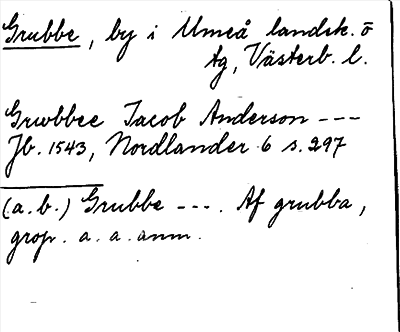 Grubbe, by i Umeå landsk. o
tg, Västerb. l.
Grwbbee Jacob Anderson ---
Jb. 1543, Nordlander 6 s. 297
(a. b.) Grubbe ---. Af grubba,
grop. a. a. anm.